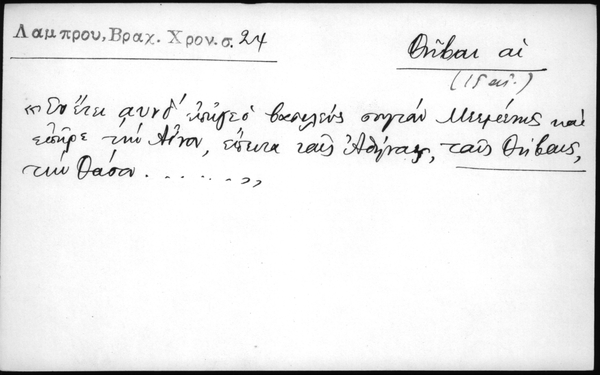 Λαμπρου, Βραχ. Χρον. σ. 24
Θῆβαι αἱ
(15 αἰ.)
«Ἐν ἔτει αυνδ' ὑπῆγεν ὁ βασιλεὺς σουλτάν Μεεμέτης καὶ
ἐπῆρε τὴν Αἶνον, ἔπειτα ταῖς Ἀθήναις, ταῖς Θήβαις,
τὴν Θάσον . . . . . . . »